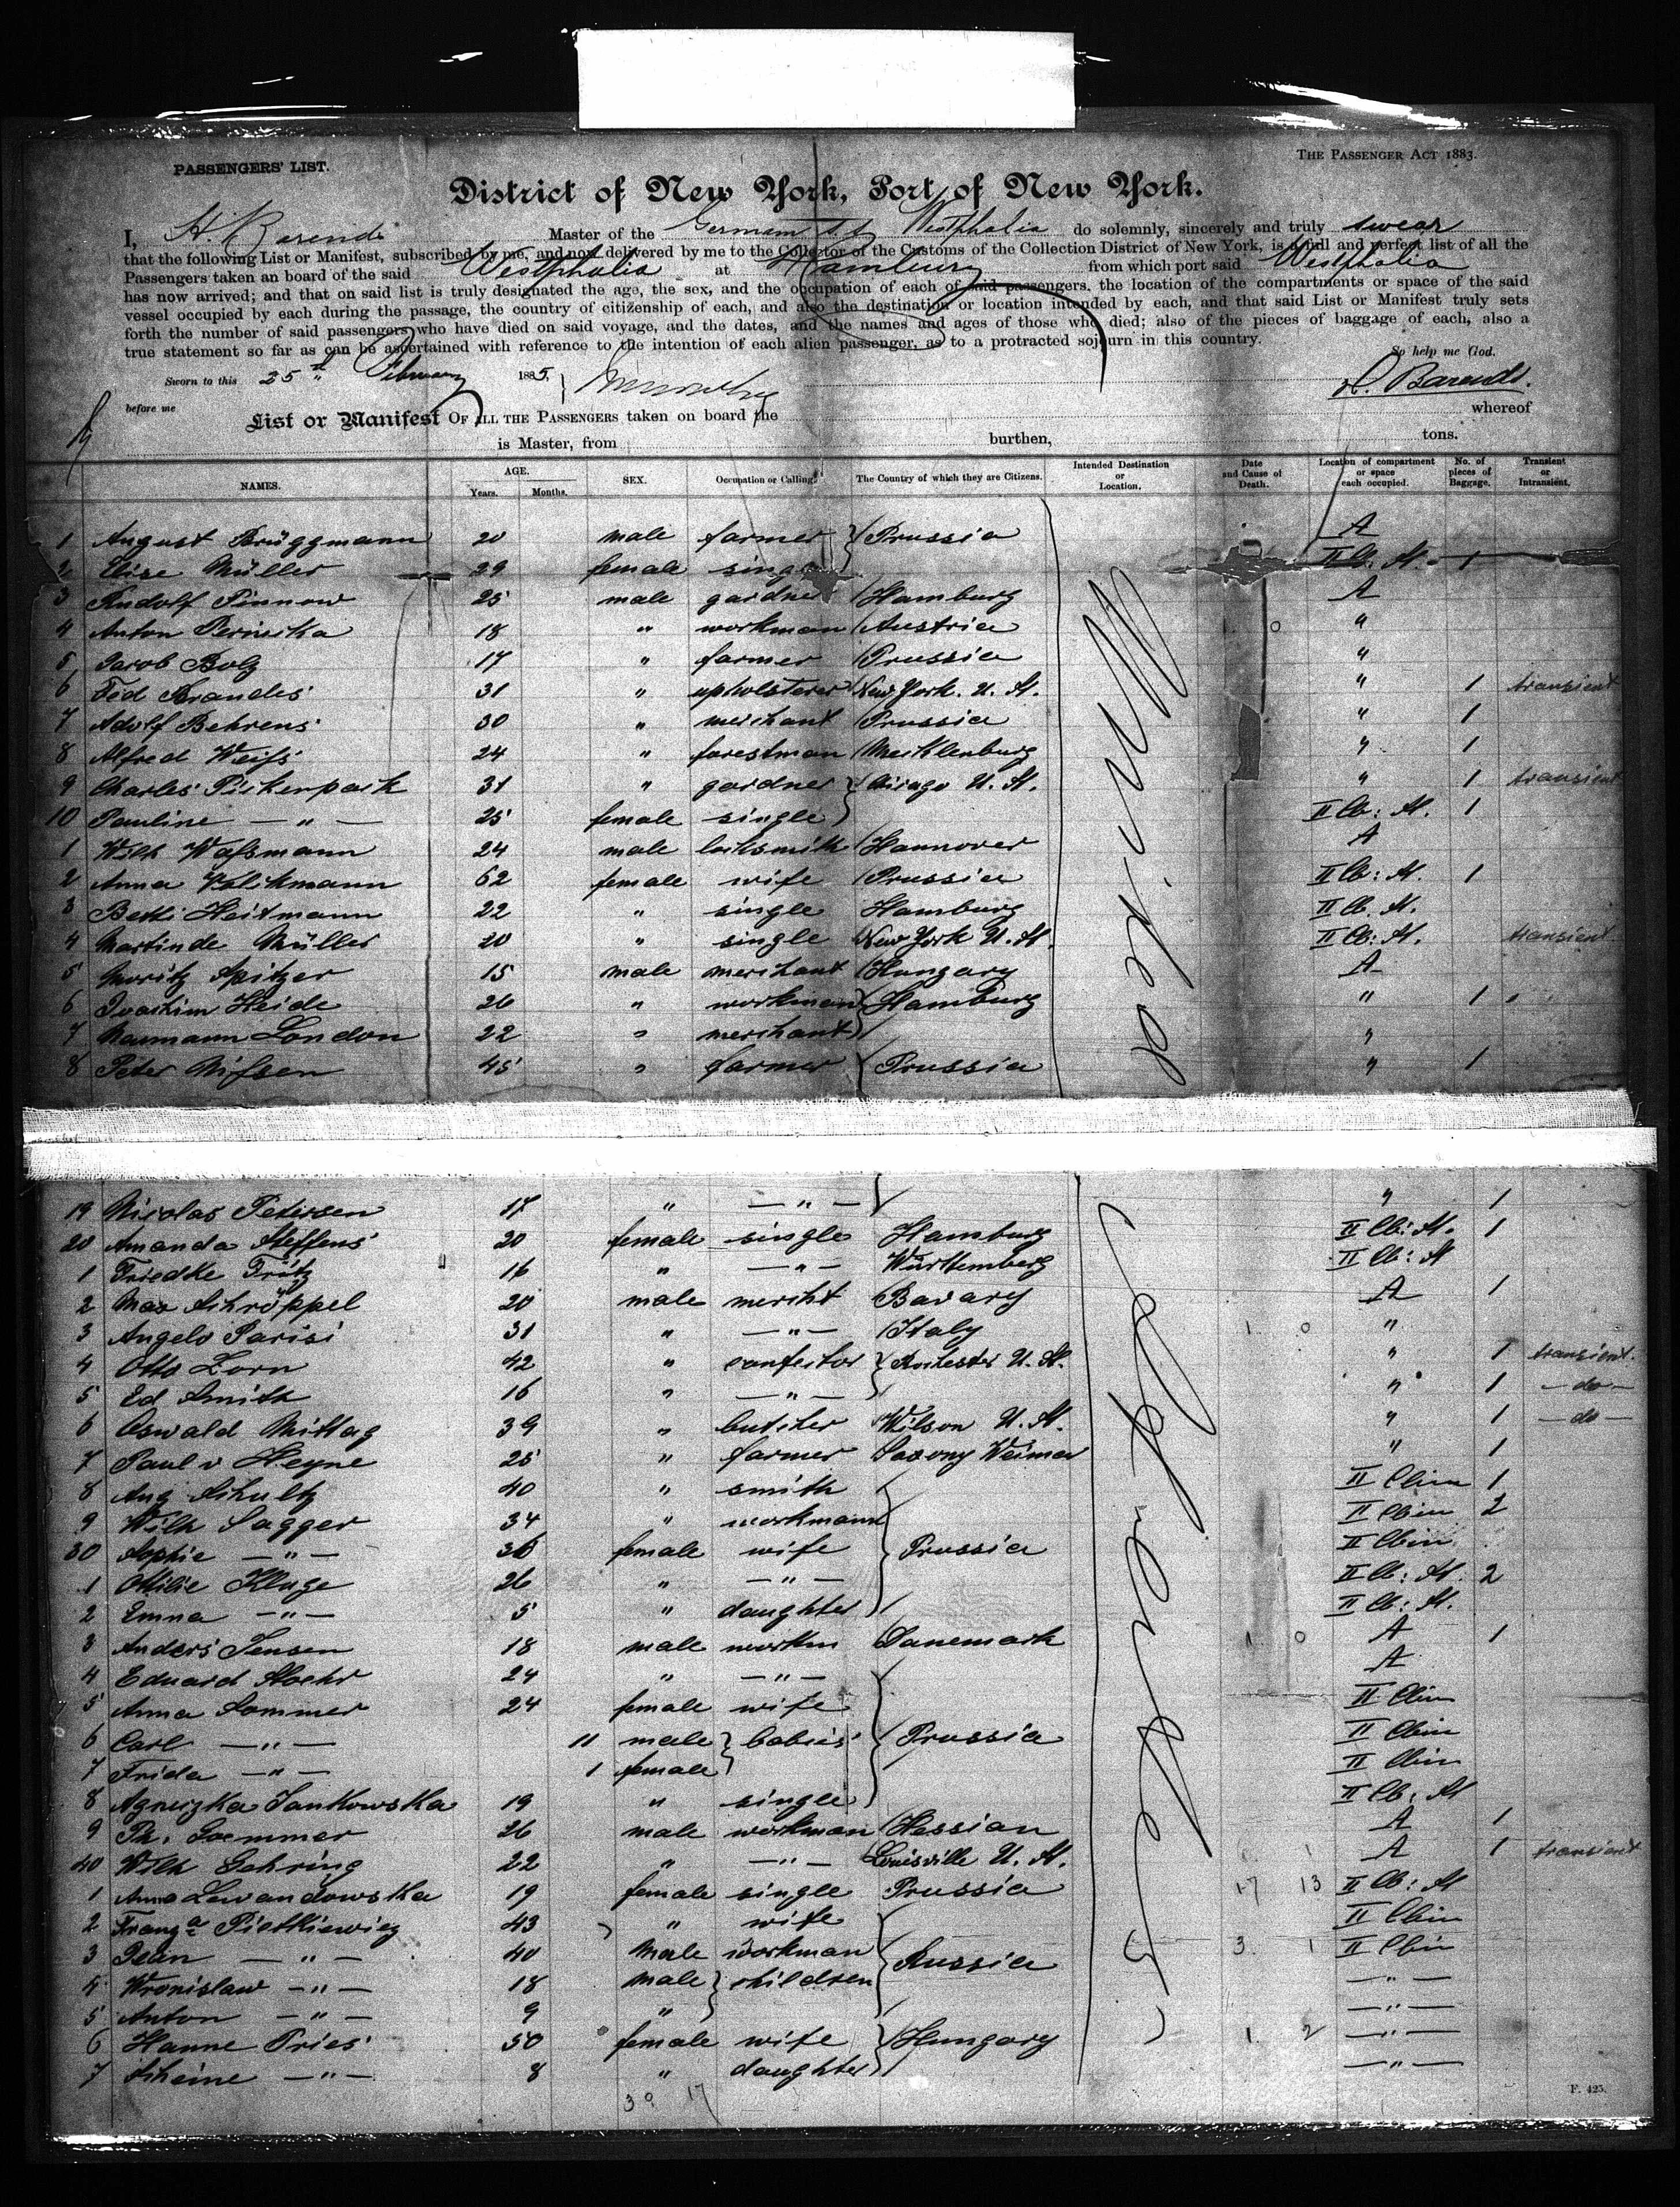 PASSENGERS' LIST.
THE PASSENGER ACT 1883.
District of New York, Port of New York.
I, H. Barends Master of the German S. S. Westphalia do solemnly, sincerely and truly swear
that the following List or Manifest, subscribed by me, and now delivered by me to the Collector of the Customs of the Collection District of New York, is a full and perfect list of all the
Passengers taken on board of the said Westphalia at Hamburg from which port said Westphalia
has now arrived; and that on said list is truly designated the age, the sex, and the occupation of each of said passengers. the location of the compartments or space of the said
vessel occupied by each during the passage, the country of citizenship of each, and also the destination or location intended by each, and that said List or Manifest truly sets
forth the number of said passengers who have died on said voyage, and the dates, and the names and ages of those who died; also of the pieces of baggage of each, also a
true statement so far as can be ascertained with reference to the intention of each alien passenger, as to a protracted sojourn in this country.
So help me God.
Sworn to this 25 " February 1885, H. Barends.
before me
List or Manifest OF ALL THE PASSENGERS taken on board the whereof
is Master, from burthen, tons.
NAMES. AGE. Years. Months. SEX. Occupation or Calling. The Country of which they are Citizens. Intended Destination or Location. Date and Cause of Death. Location of compartment or space each occupied. No. of pieces of Baggage. Transient or Intransient.
1 August Brüggmann 20 male farmer Prussia A
2 Elise Müller 29 female single II Cb. St. 1
3 Rudolf Pinnow 25 male gardner Hamburg A
4 Anton Perinika 18 " workman Austria "
5 Jacob Bolz 17 " farmer Prussia "
6 Fed Brandes 31 " upholsterer New York. U. St. " 1 transient
7 Adolf Behrens 30 " merchant Prussia " 1
8 Alfred Weiß 24 " forestman Mecklenburg " 1
9 Charles Pickenpack 31 " gardner Chicago U. St. " 1 transient
10 Pauline — " — 25 female single II Cb: St. 1
1 Wilh Waßmann 24 male locksmith Hannover A
2 Anna Volikmann 62 female wife Prussia II Cb: St. 1
3 Betti Heitmann 22 " single Hamburg II Cb. St.
4 Martinde Müller 20 " single New York U. St. II Cb: St. transient
5 Moritz Spitzer 15 male merchant Hungary A
6 Joachim Heide 26 " workman Hamburg " 1 "
7 Naumann London 22 " merchant "
8 Peter Nißen 45 " farmer Prussia " 1
19 Nicolas Petersen 17 " — " — " 1
20 Amanda Steffens 20 female single Hamburg II Cb: St. 1
1 Friedke Fritz 16 " — " — Württemberg II Cb: St
2 Max Schröppel 20 male mercht Bavary A 1
3 Angelo Parisi 31 " — " — Italy 1 0 "
4 Otto Zorn 42 " confector Rochester U. St. " 1 transient.
5 Ed Smith 16 " — " — " 1 — do —
6 Oswald Mittag 39 " butcher Wilson U. St. " 1 — do —
7 Paul v Heyne 25 " farmer Saxony Weimar " 1
8 Aug Schultz 40 " smith II Cbin 1
9 Wilh Sagger 34 " workmann II Cbin 2
30 Sophie — " — 36 female wife Prussia II Cbin
1 Ottilie Kluge 26 " — " — II Cb: St. 2
2 Emma — " — 5 " daughter II Cb: St.
3 Anders Jensen 18 male workm Danemark 1 0 A 1
4 Eduard Stoehr 24 " — " — A
5 Anna Sommer 24 female wife II Cbin
6 Carl — " — 11 male babies Prussia II Cbin
7 Frida — " — 1 female II Cbin
8 Agnuzka Jankowska 19 " single II Cb. St
9 Th. Soemmer 26 male workman Hessian A 1
40 Wilh Gehring 22 " — " — Louisville U. St. A 1 transient
1 Anna Lewandowska 19 female single Prussia 17 13 II Cb: St
2 Franza Pietkiewicz 43 " wife II Cbin
3 Jean — " — 40 male workman Russia 3. 1 II Cbin
4 Wronislaw — " — 18 male children — " —
5 Anton — " — 9 " — " —
6 Hanne Pries 50 female wife Hungary 1. 2 — " —
7 Scheine — " — 8 " daughter — " —
30 17
F. 425.